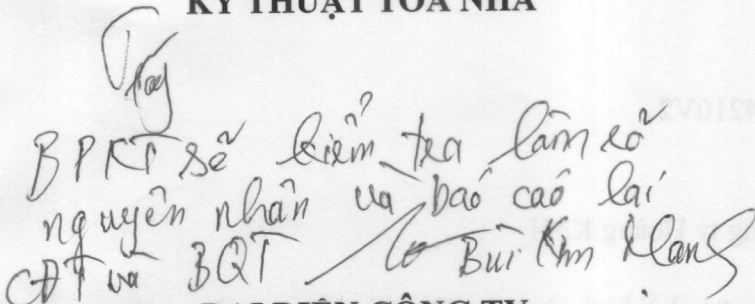 KỸ THUẬT TÒA NHÀ
BPKT sẽ kiểm tra làm rõ
nguyên nhân và báo cáo lại
CĐT và BQT Bùi Kim
ĐẠI DIỆN CÔNG TY